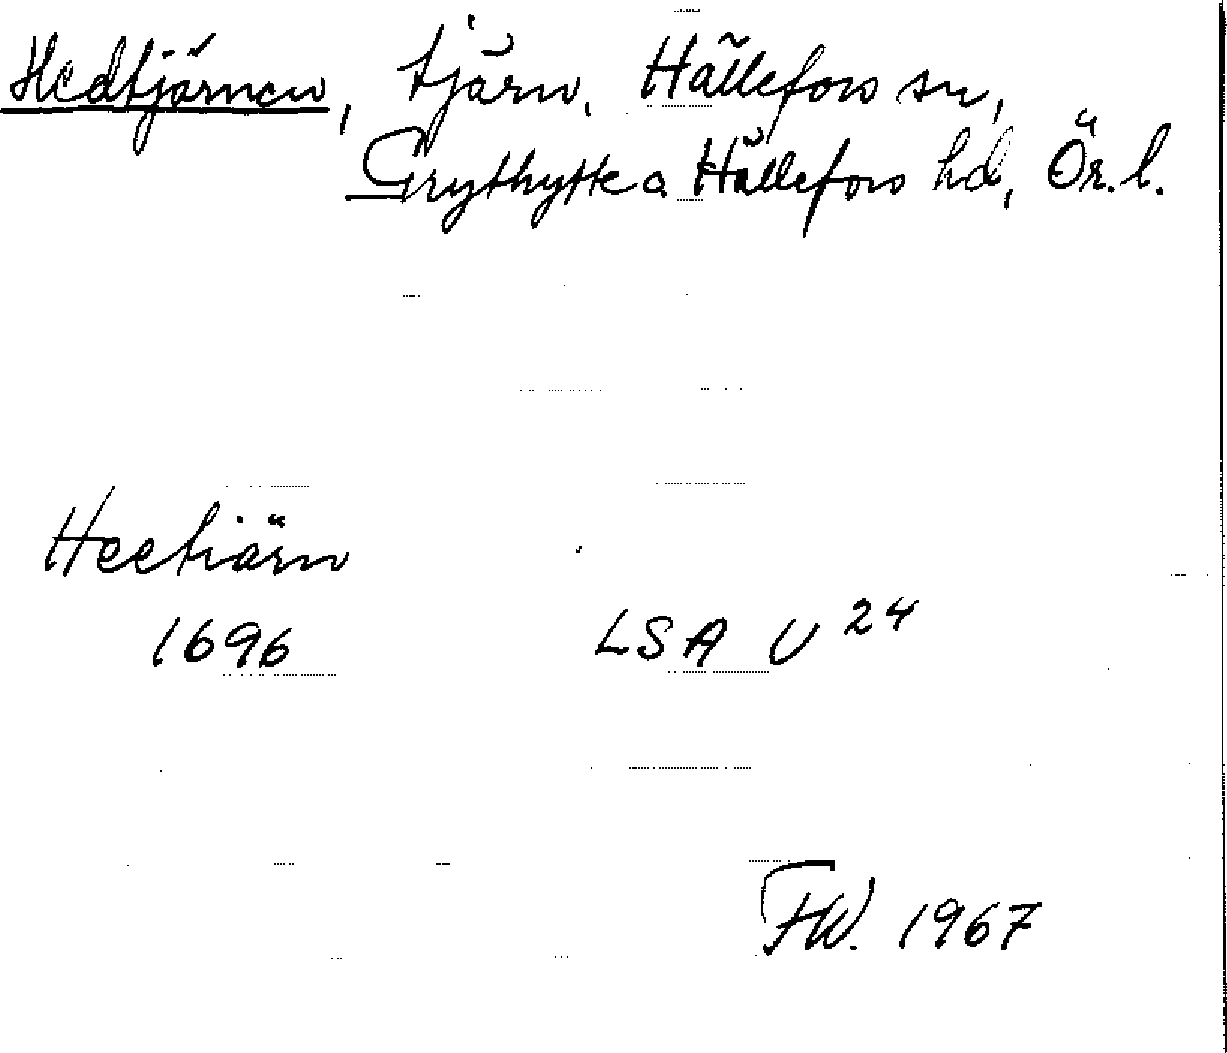 Hedtjärnen, tjärn, Hällefors sn,
Grythytte o. Hällefors hd, Ör. l.
Heetiärn
1696 LSA U 24
FW. 1967